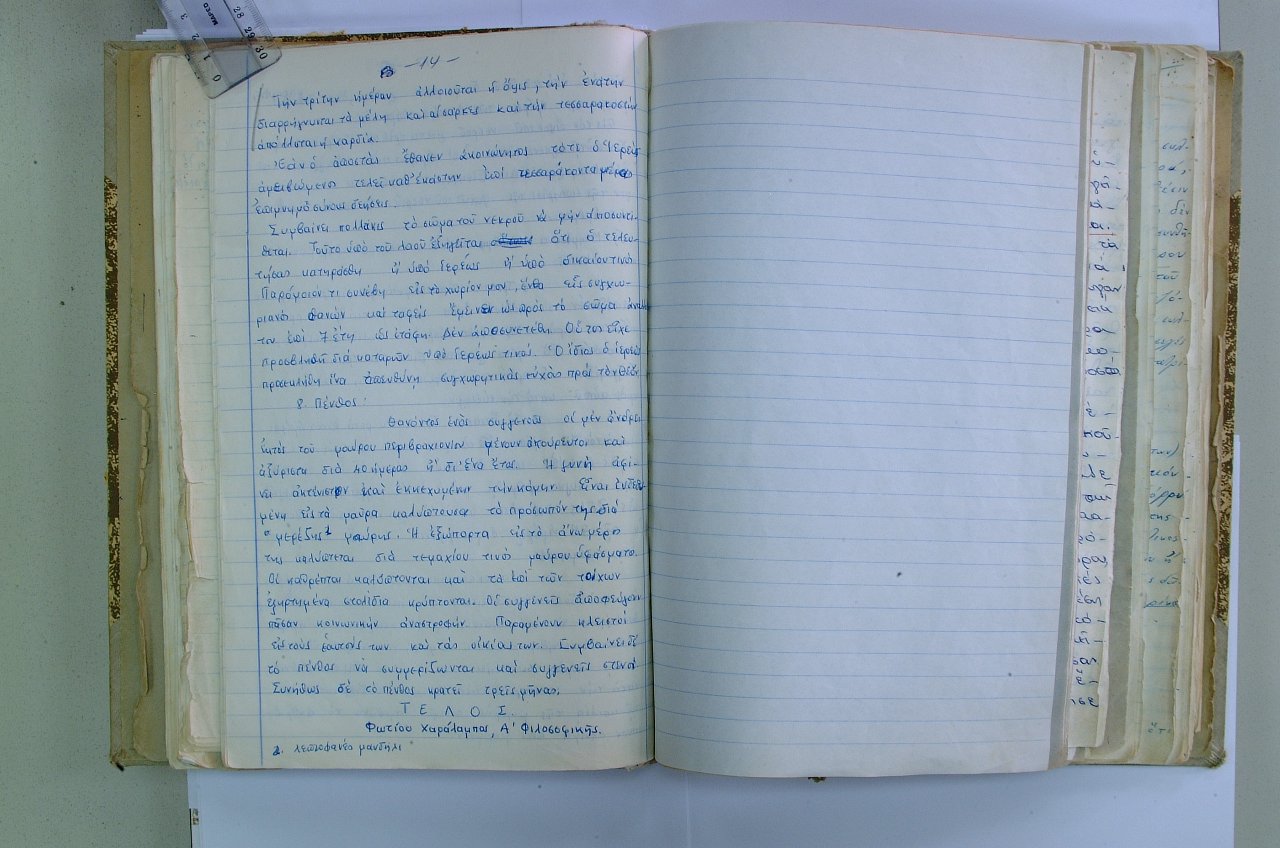 -14-
Τὴν τρίτην ἡμέραν ἀλλοιοῦται ἡ ὄψις, τὴν ἐνάτην
διαρρήγνυνται τὰ μέλη καὶ αἱ σάρκες καὶ τὴν τεσσαρακοστὴν
ἀπόλλυται ἡ καρδία.
Ἐὰν ὁ ἀποστὰς ἔθανεν ἀκοινώνητος τότε ὁ Ἱερεὺς
ἀμειβόμενος τελεῖ καθ' ἑκάστην ἐπὶ τεσσαράκοντα μέρες
ἐπιμνημοσύνους δεήσεις.
Συμβαίνει πολλάκις τὸ σῶμα τοῦ νεκροῦ νὰ μὴν ἀποσυντί-
θεται. Τοῦτο ὑπὸ τοῦ λαοῦ ἐξηγεῖται ὅτι ὁ τελευ-
τήσας κατηράσθη ἢ ὑπὸ ἱερέως ἢ ὑπὸ δικαίου τινός
Παρόμοιόν τι συνέβη εἰς τὸ χωρίον μου, ἔνθα εἷς συγχω-
ριανὸς θανὼν καὶ ταφεὶς ἔμεινεν ὡς πρὸς τὸ σῶμα
του ἐπὶ 7 ἔτη ὡς ἐτάφη. Δὲν ἀποσυνετέθη. Οὗτος εἶχε
προσβληθῆ διὰ καταρῶν ὑπὸ ἱερέως τινός. Ὁ ἴδιος ὁ ἱερεὺς
προσεκλήθη ἵνα ἀπευθύνῃ συγχωρητικὰς εὐχὰς πρὸς τὸν θεόν
8. Πένθος:
Θανόντος ἑνὸς συγγενοῦς οἱ μὲν ἄνδρες
ἐκτὸς τοῦ μαύρου περιβραχιονίου μένουν ἀκούρευτοι καὶ
ἀξύριστα διὰ 40 ἡμέρας ἢ δι' ἕνα ἔτος. Ἡ γυνὴ ἀφί-
νει ἀκτένιστον καὶ ἐκκεχυμένην τὴν κόμην. Εἶναι ἐνδεδυ-
μένη εἰς τὰ μαῦρα καλύπτουσα τὸ πρόσωπόν της διὰ
"μερέζης¹ μαύρης. Ἡ ἐξώπορτα εἰς τὸ ἄνω μέρος
της καλύπτεται διὰ τεμαχίου τινὸς μαύρου ὑφάσματος
Οἱ καθρέπται καλύπτονται καὶ τὰ ἐπὶ τῶν τοίχων
ἐξηρτημένα στολίδια κρύπτονται. Οἱ συγγενεῖς ἀποφεύγουν
πᾶσαν κοινωνικὴν ἀναστροφήν. Παραμένουν κλειστοὶ
εἰς τοὺς ἑαυτούς των καὶ τὰς οἰκίας των. Συμβαίνει δὲ
τὸ πένθος νὰ συμμερίζωνται καὶ συγγενεῖς στενοὶ
Συνήθως δὲ τὸ πένθος κρατεῖ τρεῖς μῆνας.
Τ Ε Λ Ο Σ.
Φωτίου Χαράλαμπος, Α' Φιλοσοφικῆς.
1. λεπτοφανὲς μανδήλι